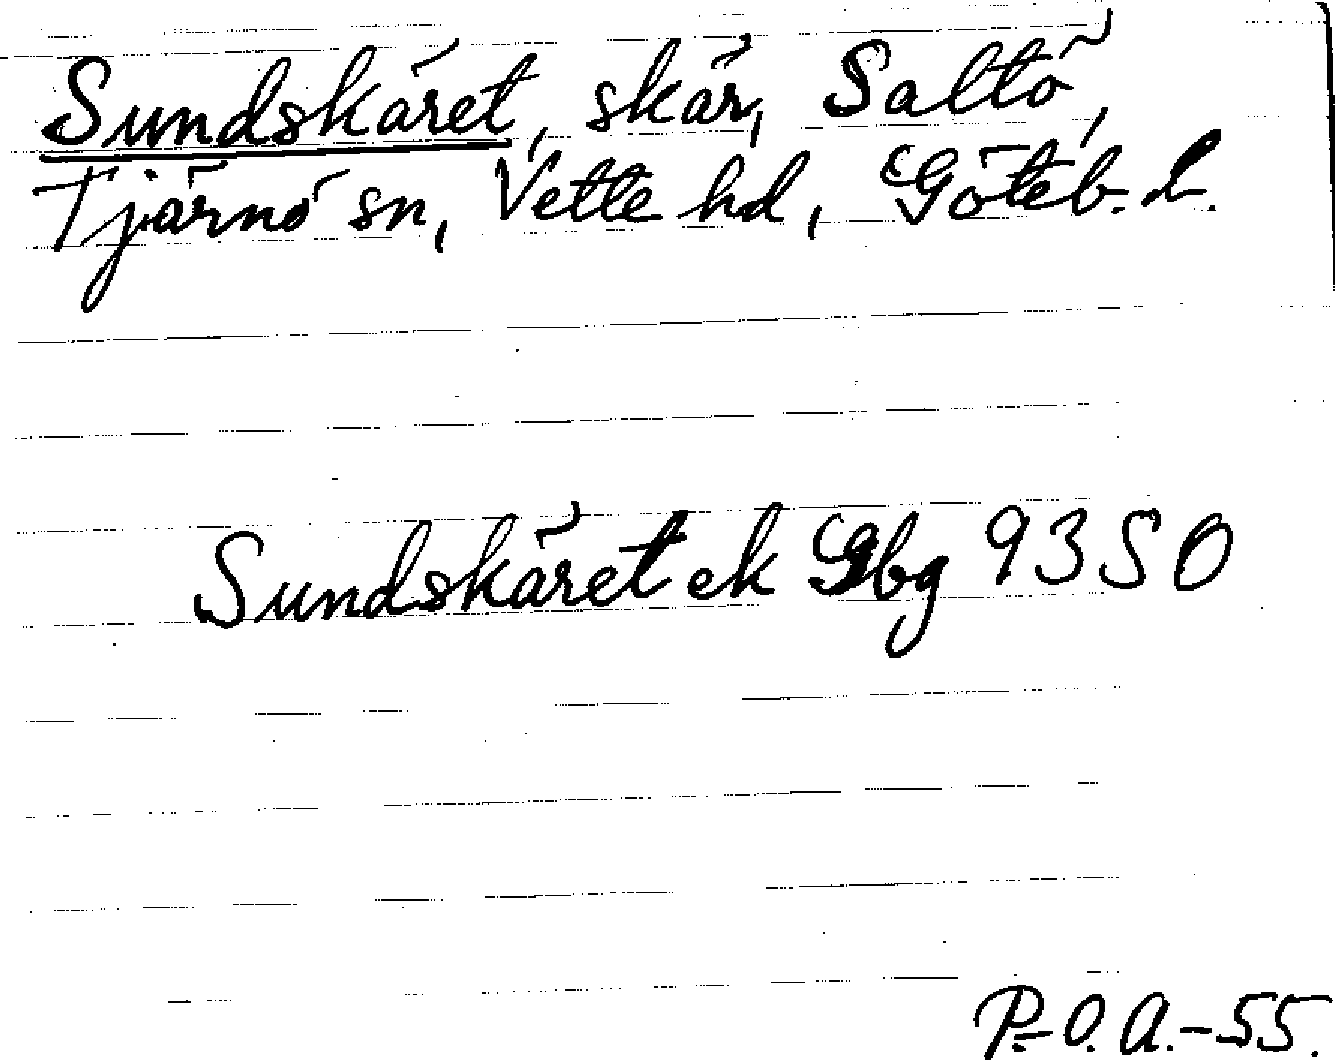 Sundskäret, skär, Saltö,
Tjärnö sn, Vette hd, Göteb. L.
Sundskäret ek Gbg 9350
P.-O. A.-55.